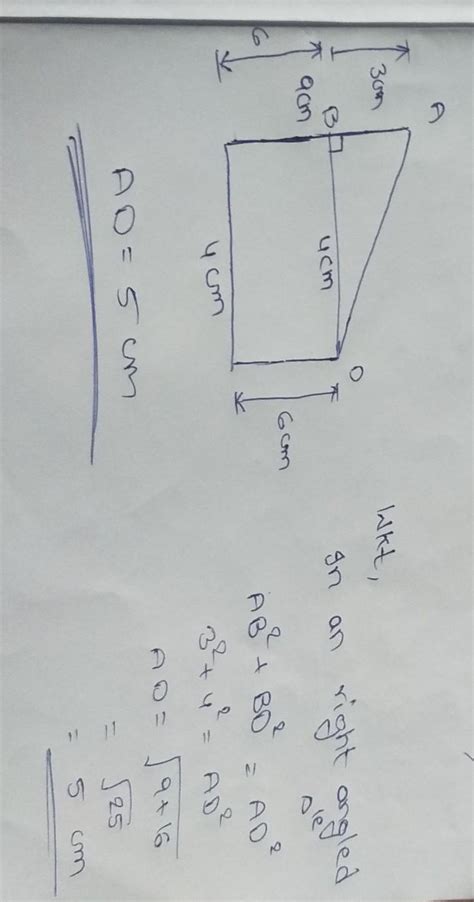 A
3cm
B
4cm
O
6
9cm
6cm
4cm
AO = 5 cm
WKT,
In an right angled
Δle
AB² + BO² = AO²
3² + 4² = AO²
AO = √9+16
= √25
= 5 cm